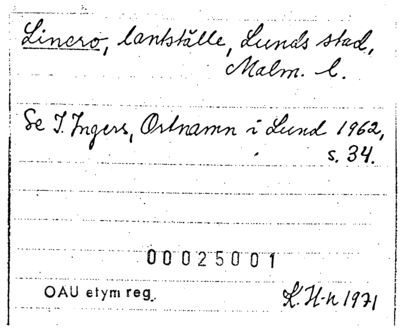 Linero, lantställe, Lunds stad,
Malm. l.
Se I. Ingers, Ortnamn i Lund 1962,
s. 34.
00025001
OAU etym reg.
K. H-n 1971